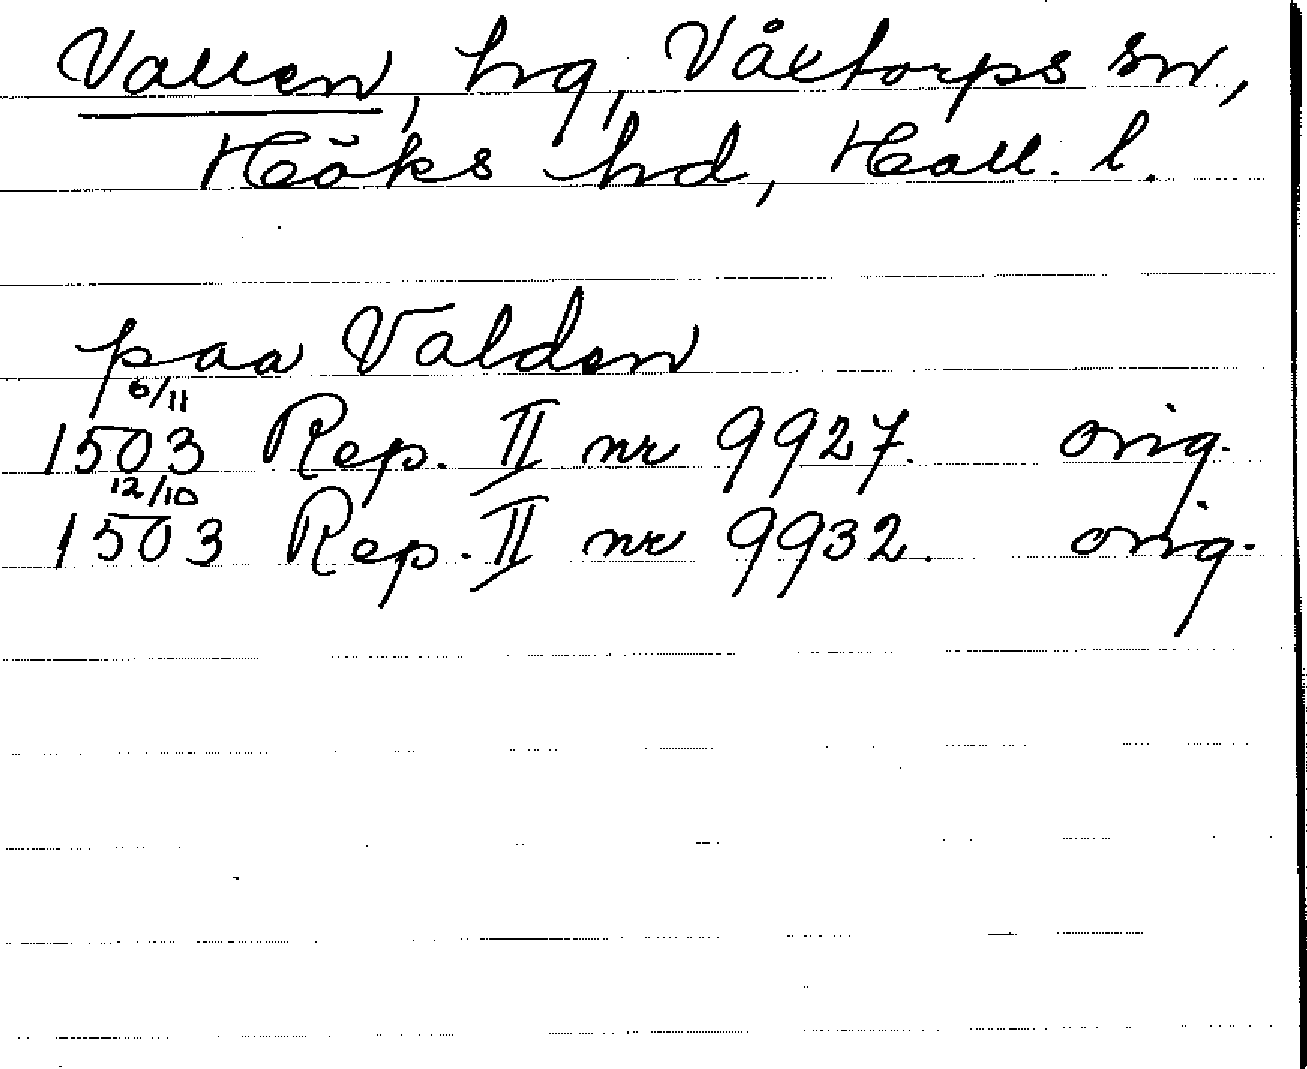 Vallen, hg, Våxtorps sn,
Höks hd, Hall. l.
paa Valden
6/11
1503 Rep. II nr 9927. orig.
12/10
1503 Rep. II nr 9932. orig.